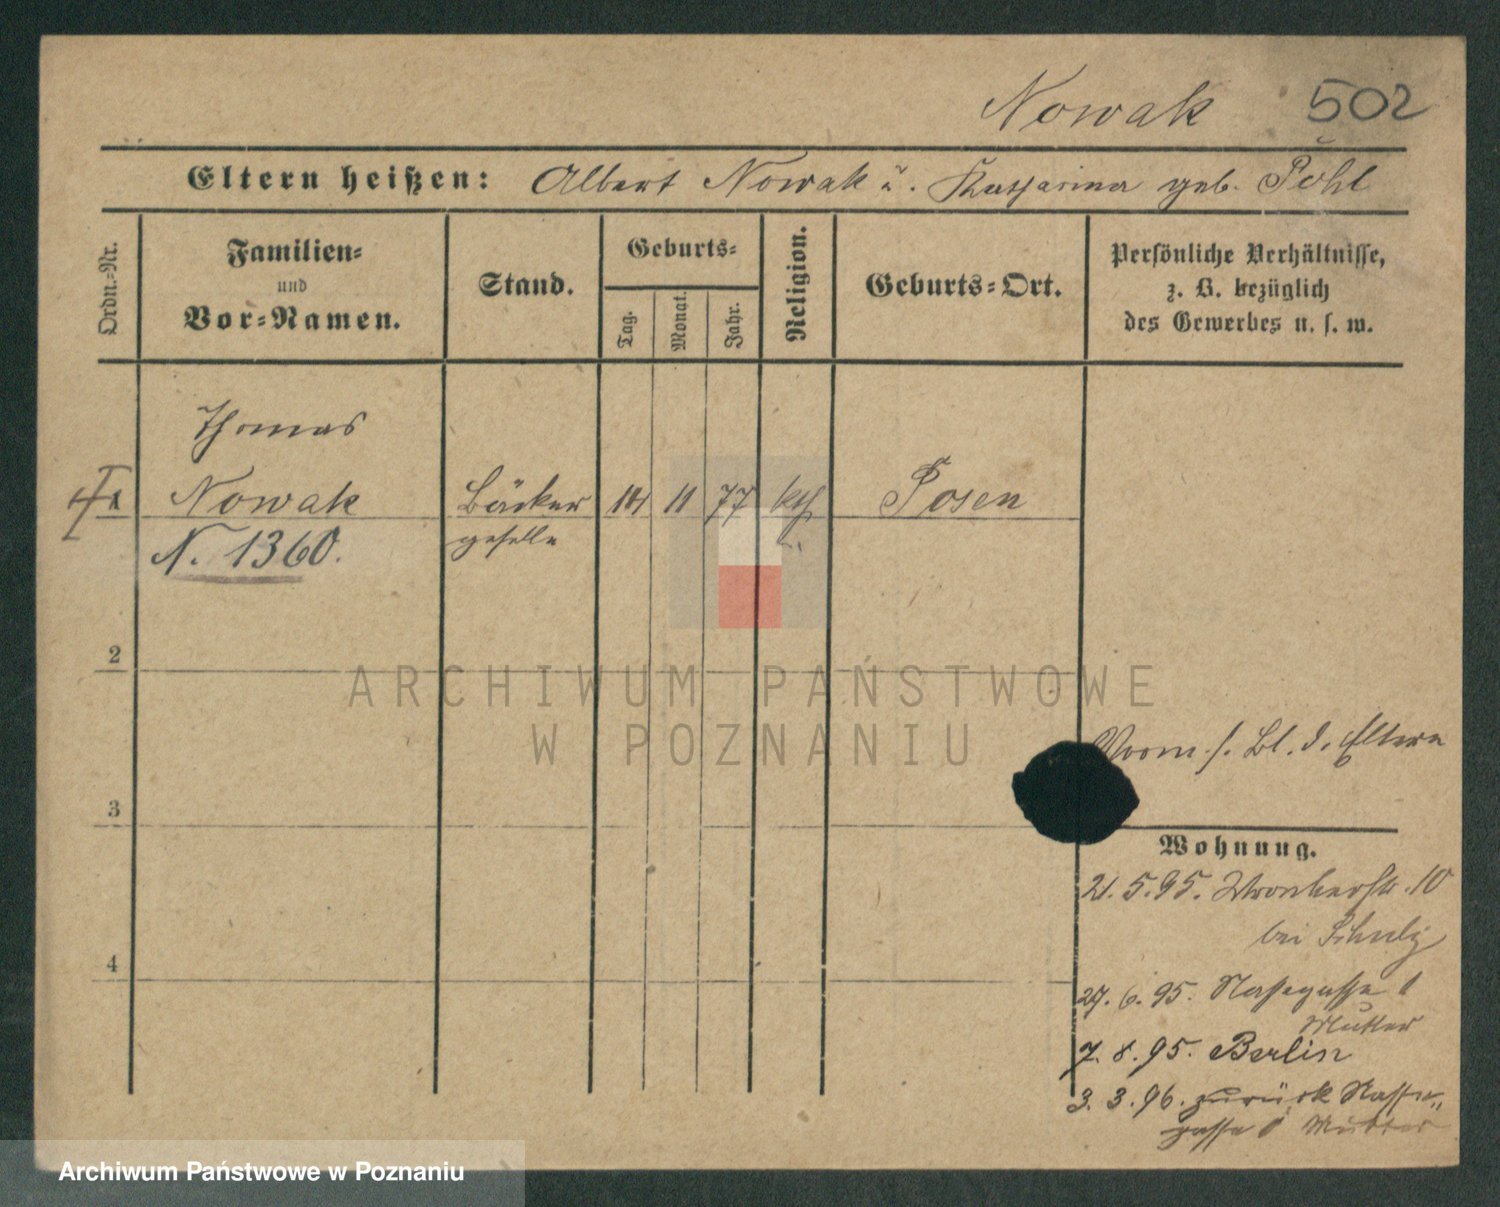 Nowak 502
Eltern heißen: Albert Nowak u. Katharina geb. Pohl
Ordn.-Nr.
Familien-
und
Vor-Namen.
Stand.
Geburts-
Tag.
Monat.
Jahr.
Religion.
Geburts-Ort.
Persönliche Verhältnisse,
z. B. bezüglich
des Gewerbes u. s. w.
Thomas
1 Nowak Bäcker 11 77 kth. Posen
N. 1360. geselle
2
ARCHIWUM PAŃSTWOWE
W POZNANIU
Vorm. s. Bl. d. Eltern
3
Wohnung.
21.5.95. Wronkerstr. 10
bei Schulz
4
27.6.95. Nassegasse 1
Mutter
7.8.95. Berlin
3.3.96. zurück Nasse-
gasse 1 Mutter
Archiwum Państwowe w Poznaniu